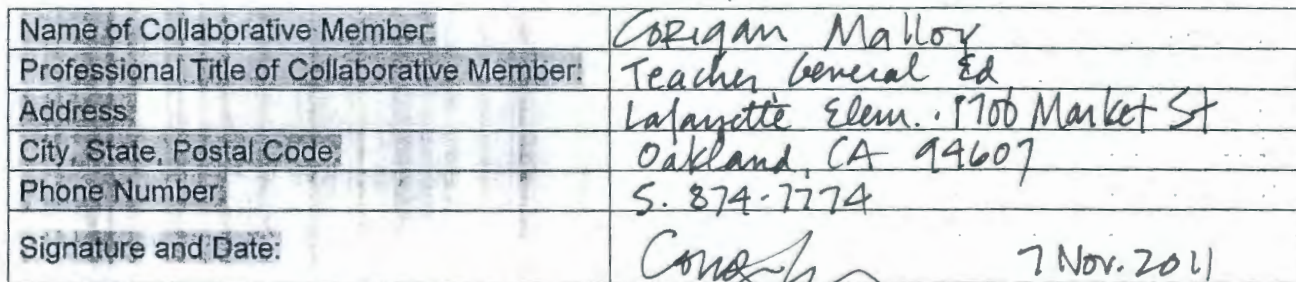 Name of Collaborative Member: Corigan Malloy
Professional Title of Collaborative Member: Teacher General Ed
Address: Lafayette Elem. 1700 Market St
City, State, Postal Code: Oakland, CA 94607
Phone Number: S. 874-7774
Signature and Date: 7 Nov. 2011